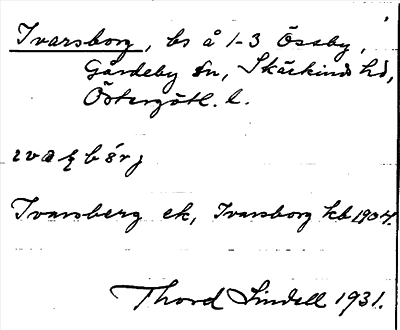 Ivarsborg, bs å 1-3 Össby,
Gårdeby sn, Skärkinds hd,
Östergötl. l.
Ivarsberg ek, Ivarsborg kb 1904.
Thord Lindell 1931.